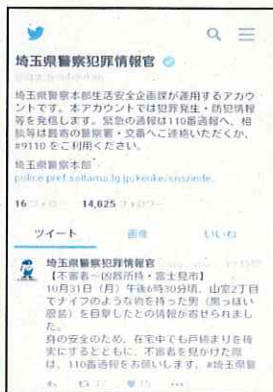 埼玉県警察犯罪情報官
埼玉県警察本部生活安全企画課が運用するアカウ
ントです。本アカウントでは犯罪発生・防犯情報
等を発信します。緊急の通報は110番通報へ、相
談等は最寄の警察署・交番へご連絡いただくか、
#9110 をご利用ください。
埼玉県警察本部
police.pref.saitama.lg.jp/kenke/sns/inde...
16 フォロー 14,825 フォロワー
ツイート 画像 いいね
埼玉県警察犯罪情報官
【不審者～凶器所持・富士見市】
10月31日（月）午後6時30分頃、山室2丁目
でナイフのような物を持った男（黒っぽい
服装）を目撃したとの情報が寄せられまし
た。
身の安全のため、在宅中でも戸締まりを確
実にするとともに、不審者を見かけた際
は、110番通報をお願いします。#埼玉県警
15